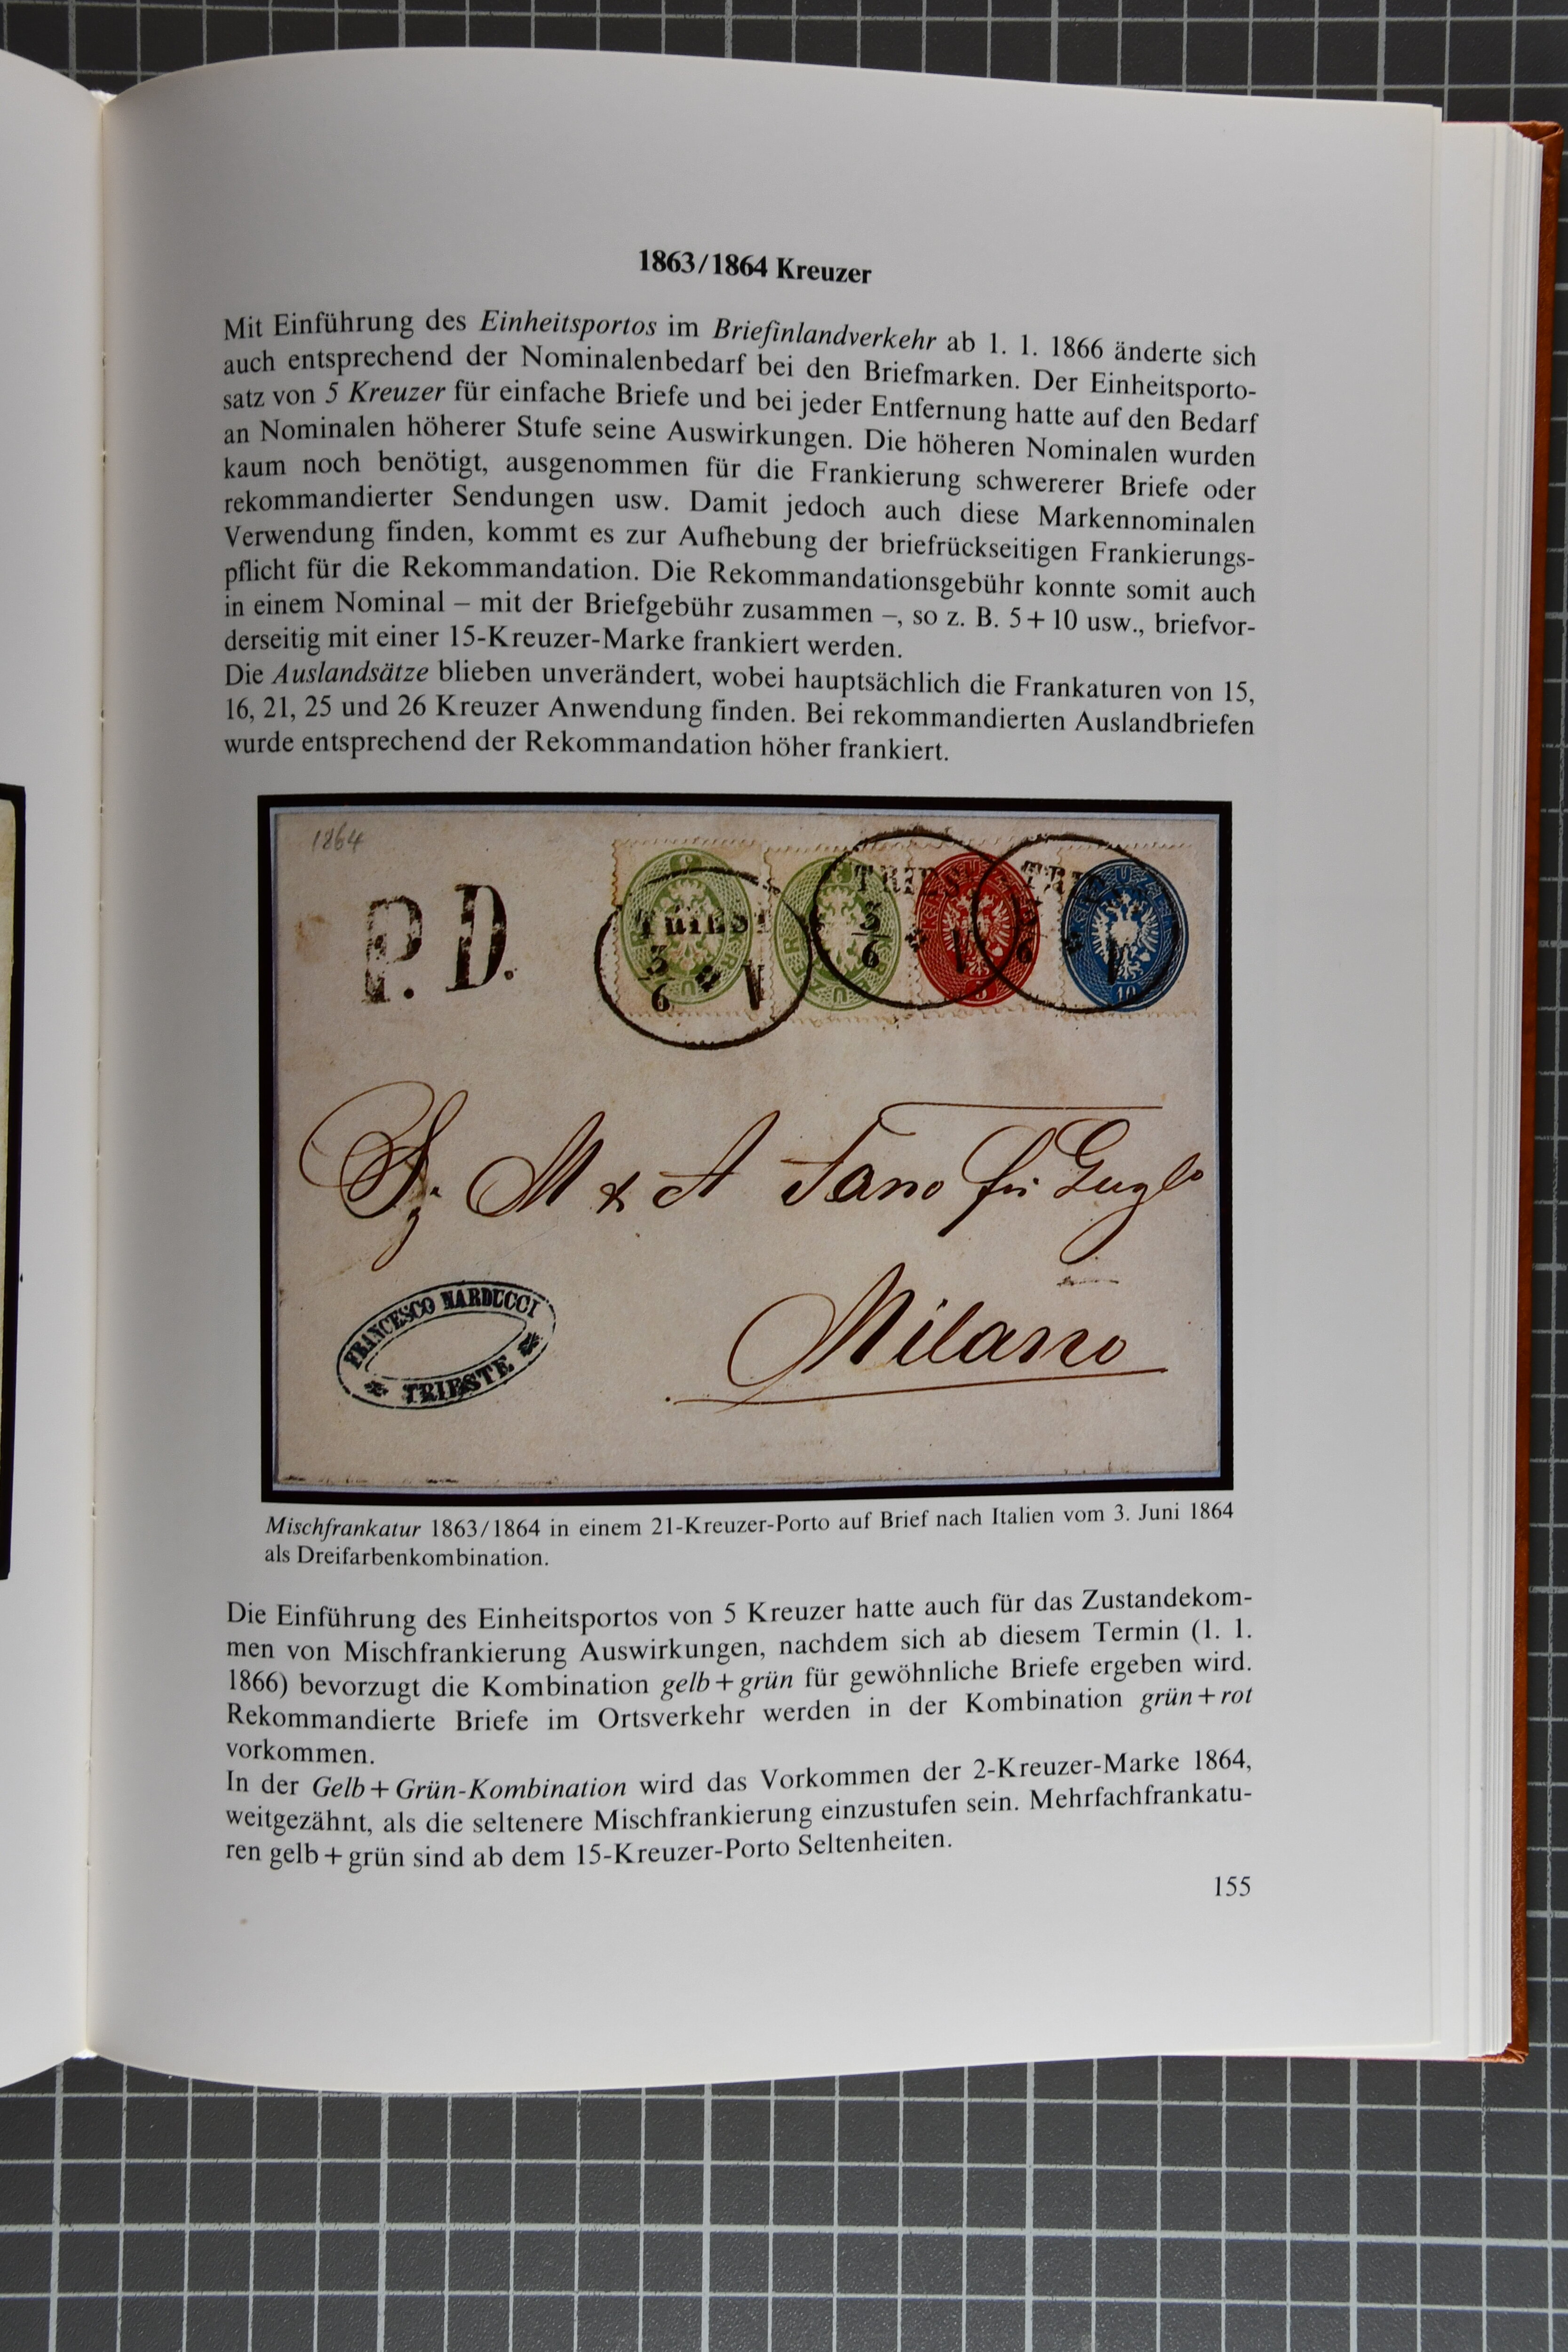 1863/1864 Kreuzer
Mit Einführung des Einheitsportos im Briefinlandverkehr ab 1. 1. 1866 änderte sich
auch entsprechend der Nominalenbedarf bei den Briefmarken. Der Einheitsporto-
satz von 5 Kreuzer für einfache Briefe und bei jeder Entfernung hatte auf den Bedarf
an Nominalen höherer Stufe seine Auswirkungen. Die höheren Nominalen wurden
kaum noch benötigt, ausgenommen für die Frankierung schwererer Briefe oder
rekommandierter Sendungen usw. Damit jedoch auch diese Markennominalen
Verwendung finden, kommt es zur Aufhebung der briefrückseitigen Frankierungs-
pflicht für die Rekommandation. Die Rekommandationsgebühr konnte somit auch
in einem Nominal – mit der Briefgebühr zusammen –, so z. B. 5 + 10 usw., briefvor-
derseitig mit einer 15-Kreuzer-Marke frankiert werden.
Die Auslandsätze blieben unverändert, wobei hauptsächlich die Frankaturen von 15,
16, 21, 25 und 26 Kreuzer Anwendung finden. Bei rekommandierten Auslandbriefen
wurde entsprechend der Rekommandation höher frankiert.
1864
P. D.
TRIEST
3/6 V
TRIES
3/6 V
TRI
6
10
M & A
Milano
FRANCESCO NARDUCCI
TRIESTE
Mischfrankatur 1863/1864 in einem 21-Kreuzer-Porto auf Brief nach Italien vom 3. Juni 1864
als Dreifarbenkombination.
Die Einführung des Einheitsportos von 5 Kreuzer hatte auch für das Zustandekom-
men von Mischfrankierung Auswirkungen, nachdem sich ab diesem Termin (1. 1.
1866) bevorzugt die Kombination gelb + grün für gewöhnliche Briefe ergeben wird.
Rekommandierte Briefe im Ortsverkehr werden in der Kombination grün + rot
vorkommen.
In der Gelb + Grün-Kombination wird das Vorkommen der 2-Kreuzer-Marke 1864,
weitgezähnt, als die seltenere Mischfrankierung einzustufen sein. Mehrfachfrankatu-
ren gelb + grün sind ab dem 15-Kreuzer-Porto Seltenheiten.
155